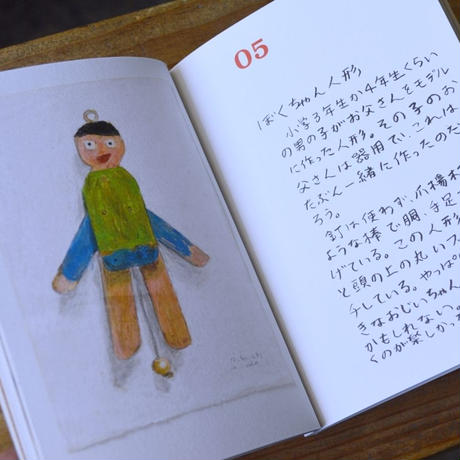 05
ぼくちゃん人形
小学3年生か4年生くらい
の男の子がお父さんをモデル
に作った人形。その子のお
父さんは器用で、これは
たぶん一緒に作ったのだ
ろう。
釘は使わず、爪楊枝
ような棒で胴、手足
げている。この人形
と頭の上の丸いフ
チしている。やっぱり
きなおじいちゃん
かもしれない。
くのが楽しかっ